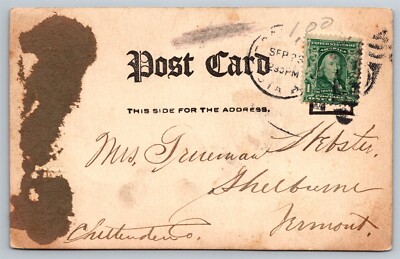 100
SEP 23
Post Card
THIS SIDE FOR THE ADDRESS.
1
Mrs. Trueman Webster,
Shelburne
Vermont.
Chittenden Co.